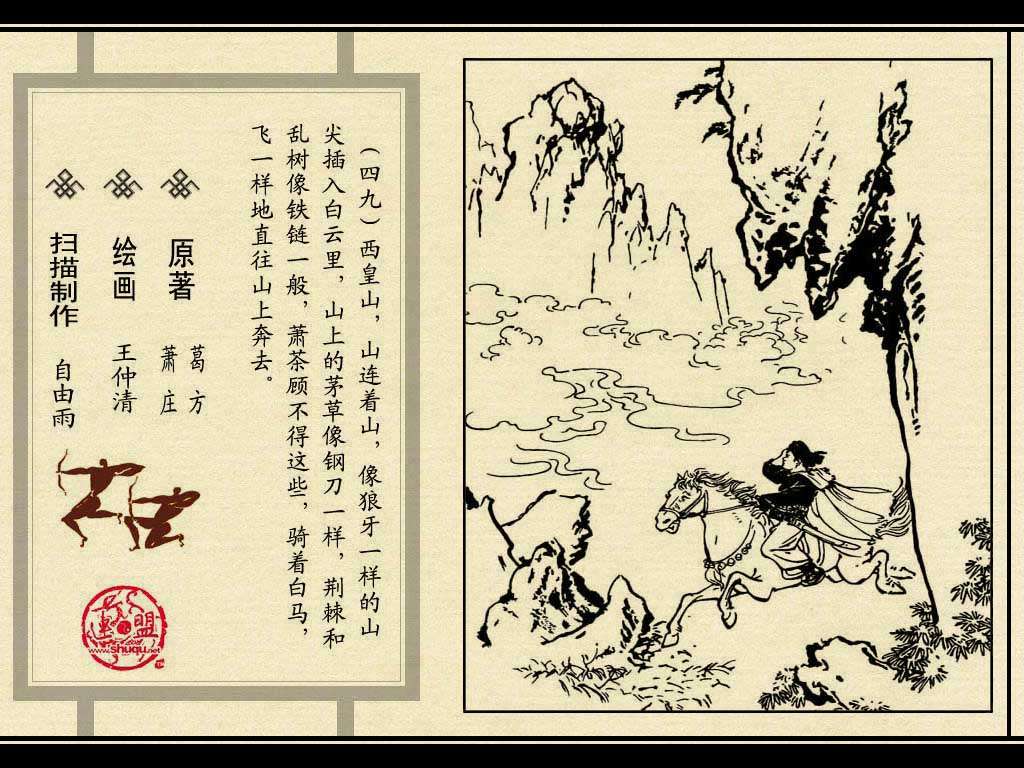 （四九）西皇山，山连着山，像狼牙一样的山
尖插入白云里，山上的茅草像钢刀一样，荆棘和
乱树像铁链一般，萧茶顾不得这些，骑着白马，
飞一样地直往山上奔去。
原著
葛方
萧庄
绘画
王仲清
扫描制作
自由雨
連盟
www.shuqu.net